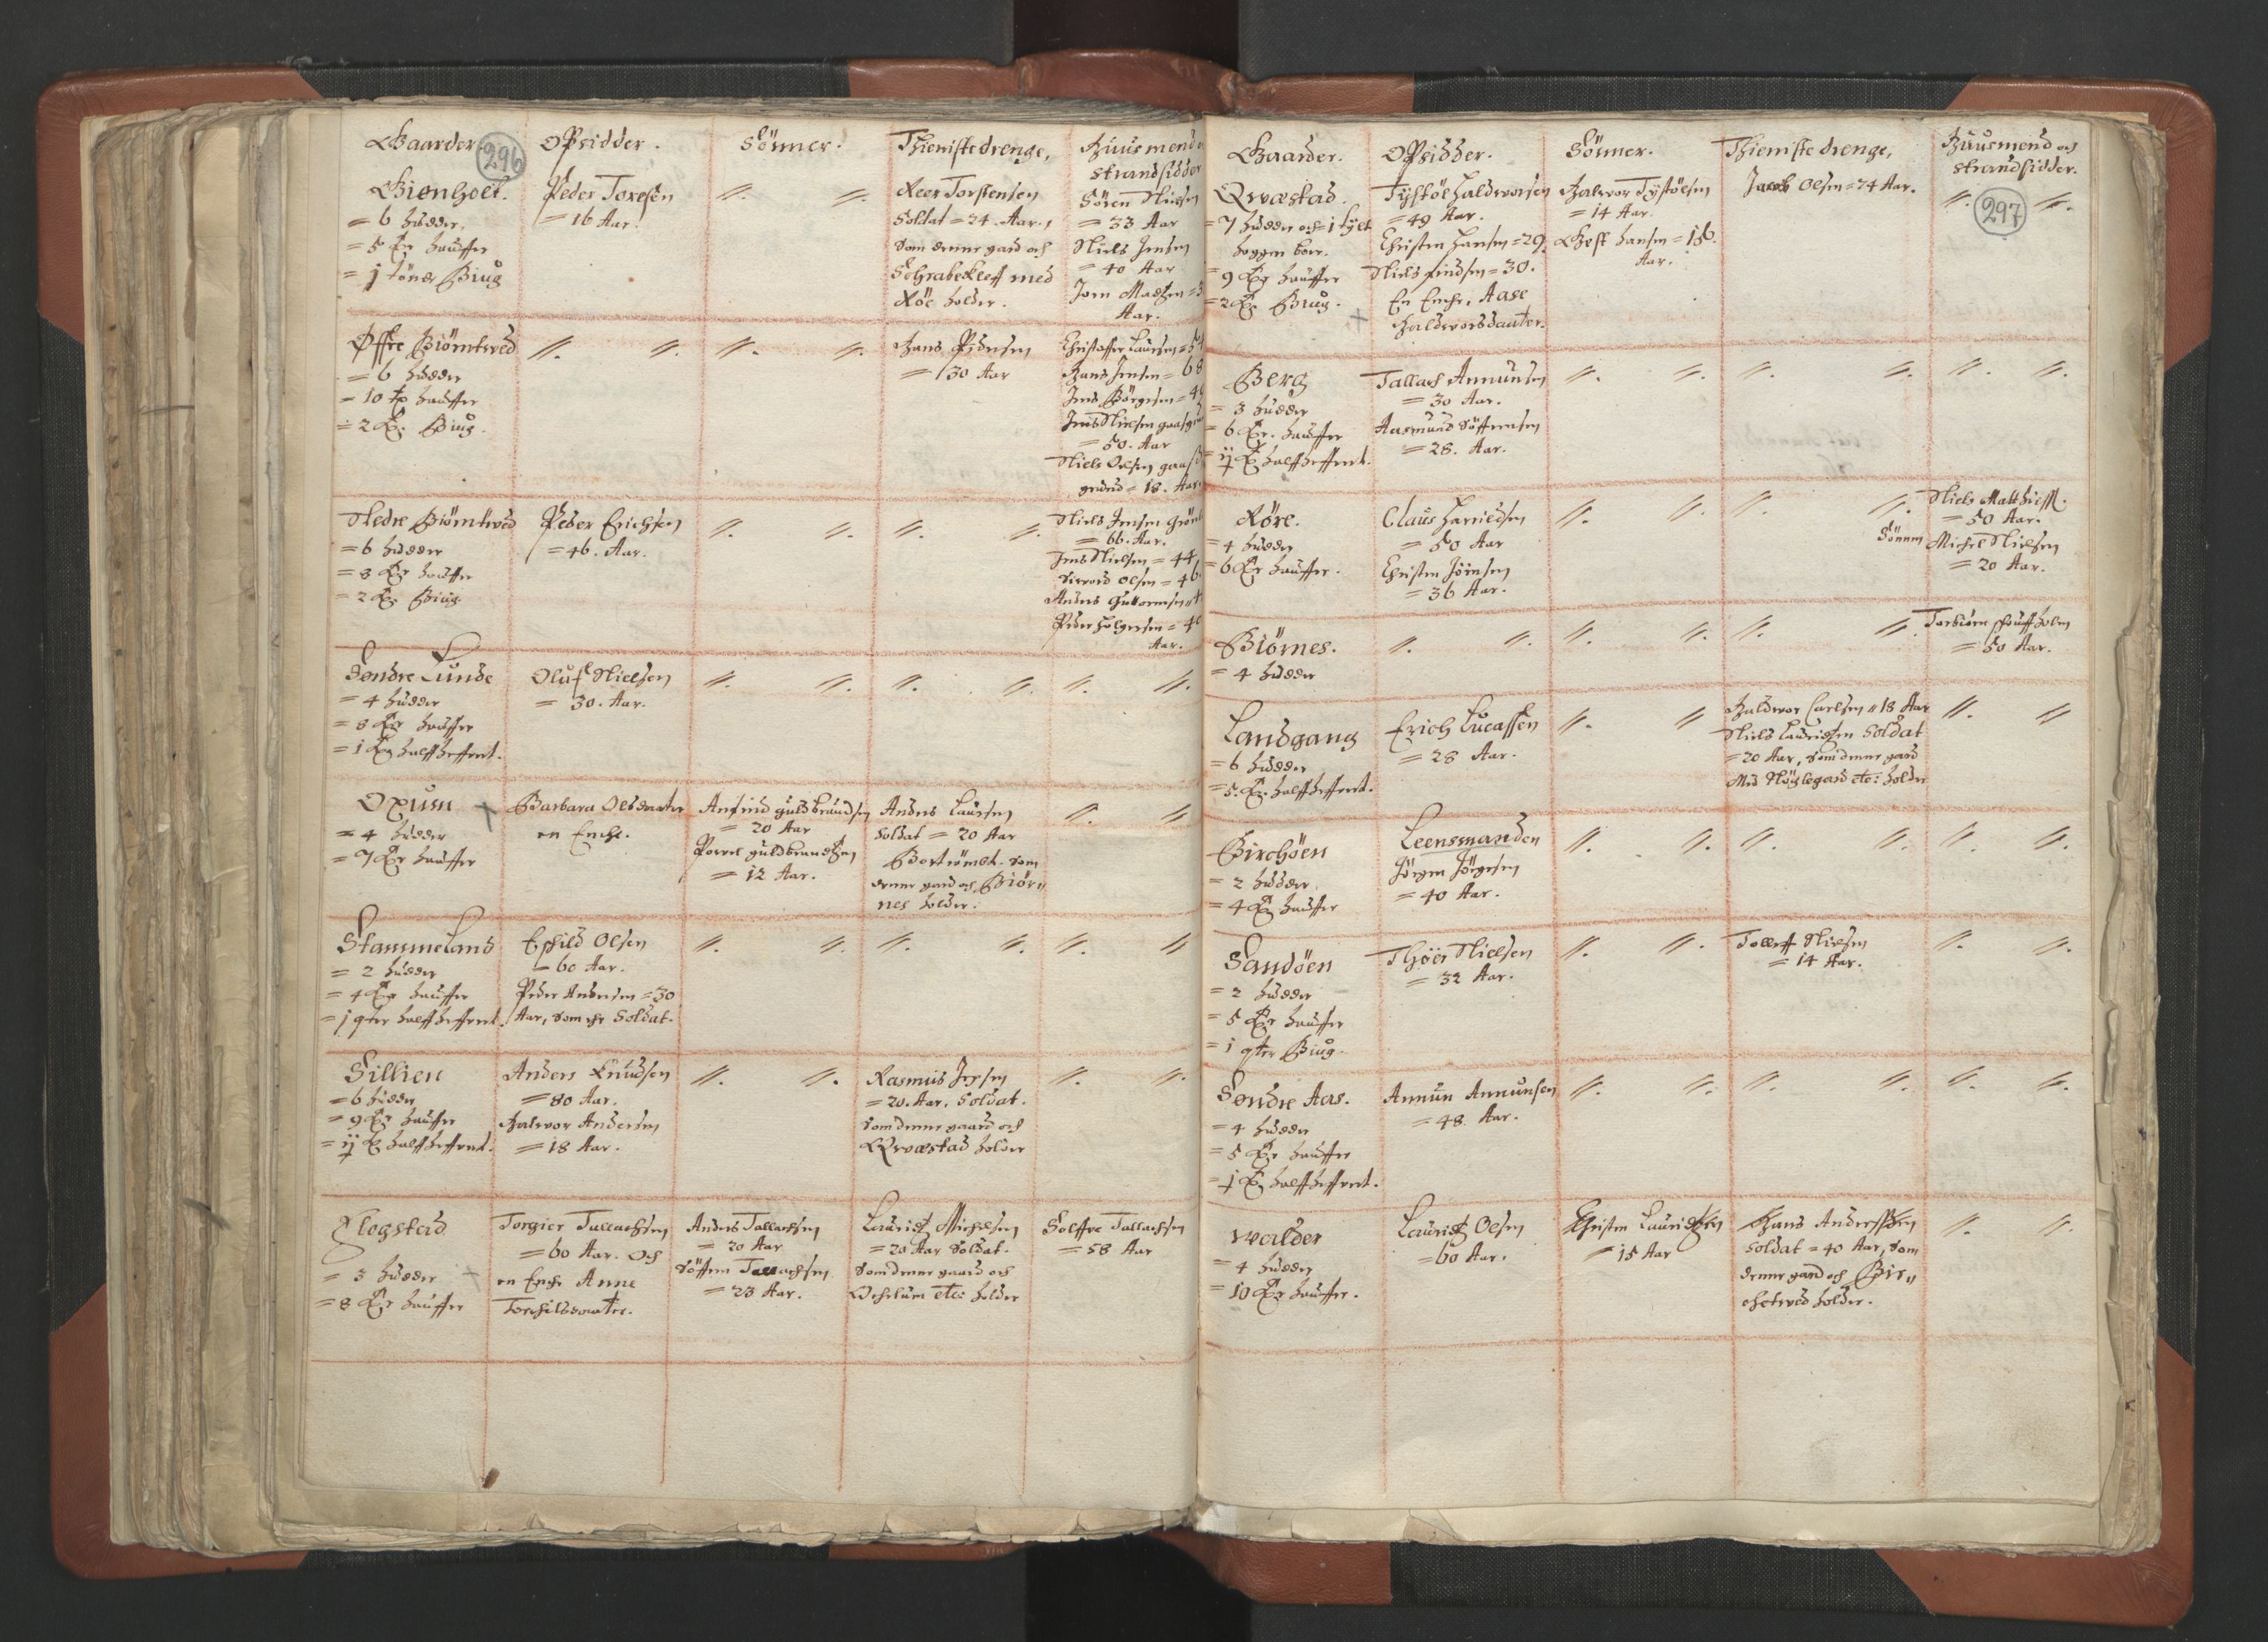 Gaarder.
296
Opsidder.
Sönner.
Thienistedrenge,
Huusmend
strandsidder
Gienholt.
= 6 huder,
= 5 hauffre
= 1 tönde Biug
Peder Toresen
= 16 Aar.
Reer Torstensen
Soldat = 24. Aar.,
som denne gard och
Schrabekleff med
Röe holder.
Sören Nielsen
= 33 Aar
Niels Jensen
= 40 Aar
Jorn Madtzen =
Aar.
Øffre Biörntved
= 6 huder
= 10 hauffre
= 2 Biug.
Hans Pedersen
= 30 Aar
Christoffer Laursen =
Hans Jensen = 68
Jens Börgesen =
Jens Nielsen
= 50. Aar
Niels Olsen
= 18. Aar.
Nedre Biörntved
= 6 huder
= 8 haufre
= 2 Biug.
Peder Erichsen
= 46. Aar.
Niels Jensen
= 66. Aar.
Jens Nielsen = 44
Sivord Olsen = 46
Anders Guttormsen
Peder Holgersen =
Aar.
Sondre Lunde
= 4 huder
= 8 haufre
= 1 halffheffvret.
Oluf Nielsen
= 30. Aar.
Oxum
= 4 huder
= 7 haufre
Barbara Olsdaater
en Encke.
Anfind guldbrandsen
= 20 Aar
Povel guldbrandtzen
= 12 Aar.
Anders Laursen
Soldat = 20 Aar
Bortrömbt. som
denne gard och Biör〃
nes holder.
Stammeland
= 2 huder
= 4 haufre
= 1 qter halffheffvret.
Eskild Olsen
= 60 Aar.
Peder Andersen = 30
Aar, som ehr Soldat.
Sillien
= 6 huder
= 9 haufre
halffheffvret.
Anders Knudsen
= 80 Aar.
Halvor Andersen
= 18 Aar.
Rasmus Jensen
= 20. Aar. Soldat.
som denne gaard och
Qvæstad holder
Flogstad
= 3 huder
= 8 haufre
Torgier Tallachsen
= 60 Aar. Och
en Encke Anne
Torchildsdaater.
Anders Tallachsen
= 20 Aar
Söffren Tallachsen
= 23 Aar.
Lauridtz Michelsen
= 20 Aar Soldat.
som denne gaard och
etc: holder
Solffve Tallachsen
= 58 Aar
Gaarder.
Opsidder.
Sönner.
Thieniste drenge,
Huusmend och
strandsidder.
297
Qvæstad
= 7 huder och 1 tylt
hoggen borr.
= 9 haufre
= 2 Biug.
Tystöl Haldvorsen
= 49 Aar.
Christen Hansen = 29.
Niels findsen = 30.
En Encke, Aase
Haldvorsdaater.
Halvor Tystölsen
= 14 Aar.
Hansen = 16.
Aar.
Jacob Olsen = 24 Aar.
Berg
= 3 huder
= 6 haufre
halffheffvret.
Tallach Annunsen
= 30 Aar.
Aasmund Söffrensen
= 28. Aar.
Röre.
= 4 huder
= 6 haufre.
Claus Harrildsen
= 50 Aar
Christen Jörnsen
= 36 Aar.
Sönnen
Niels Matthiess.
= 50 Aar.
Michel Nielsen
= 20 Aar.
Biörnes.
= 4 huder
Torbiörn
= 50 Aar.
Landgang
= 6 huder
= 5 halffheffvret.
Erich Lucassen
= 28 Aar.
Haldvor Carlsen 〃 18 Aar
Niels Lauridtzen Soldat
= 20 Aar, som denne gard
Med Nöglegard etc: holder
Birchöen
= 2 huder
= 4 haufre
Leensmanden
Jörgen Jörgesen
= 40 Aar.
Sandöen
= 2 huder
= 5 haufre
= 1 qter Biug.
Thöer Nielsen
= 32 Aar.
Tolleff Nielsen
= 14 Aar.
Sondre Aas.
= 4 huder
= 5 haufre
= 1 halffheffvret.
Annun Annunsen
= 48. Aar.
Walder
= 4 huder
= 10 haufre.
Lauridtz Olsen
= 60 Aar.
Christen Lauridtzen
= 15 Aar
Hans Andersen
Soldat = 40 Aar, som
denne gard och Bir〃
chetved holder.